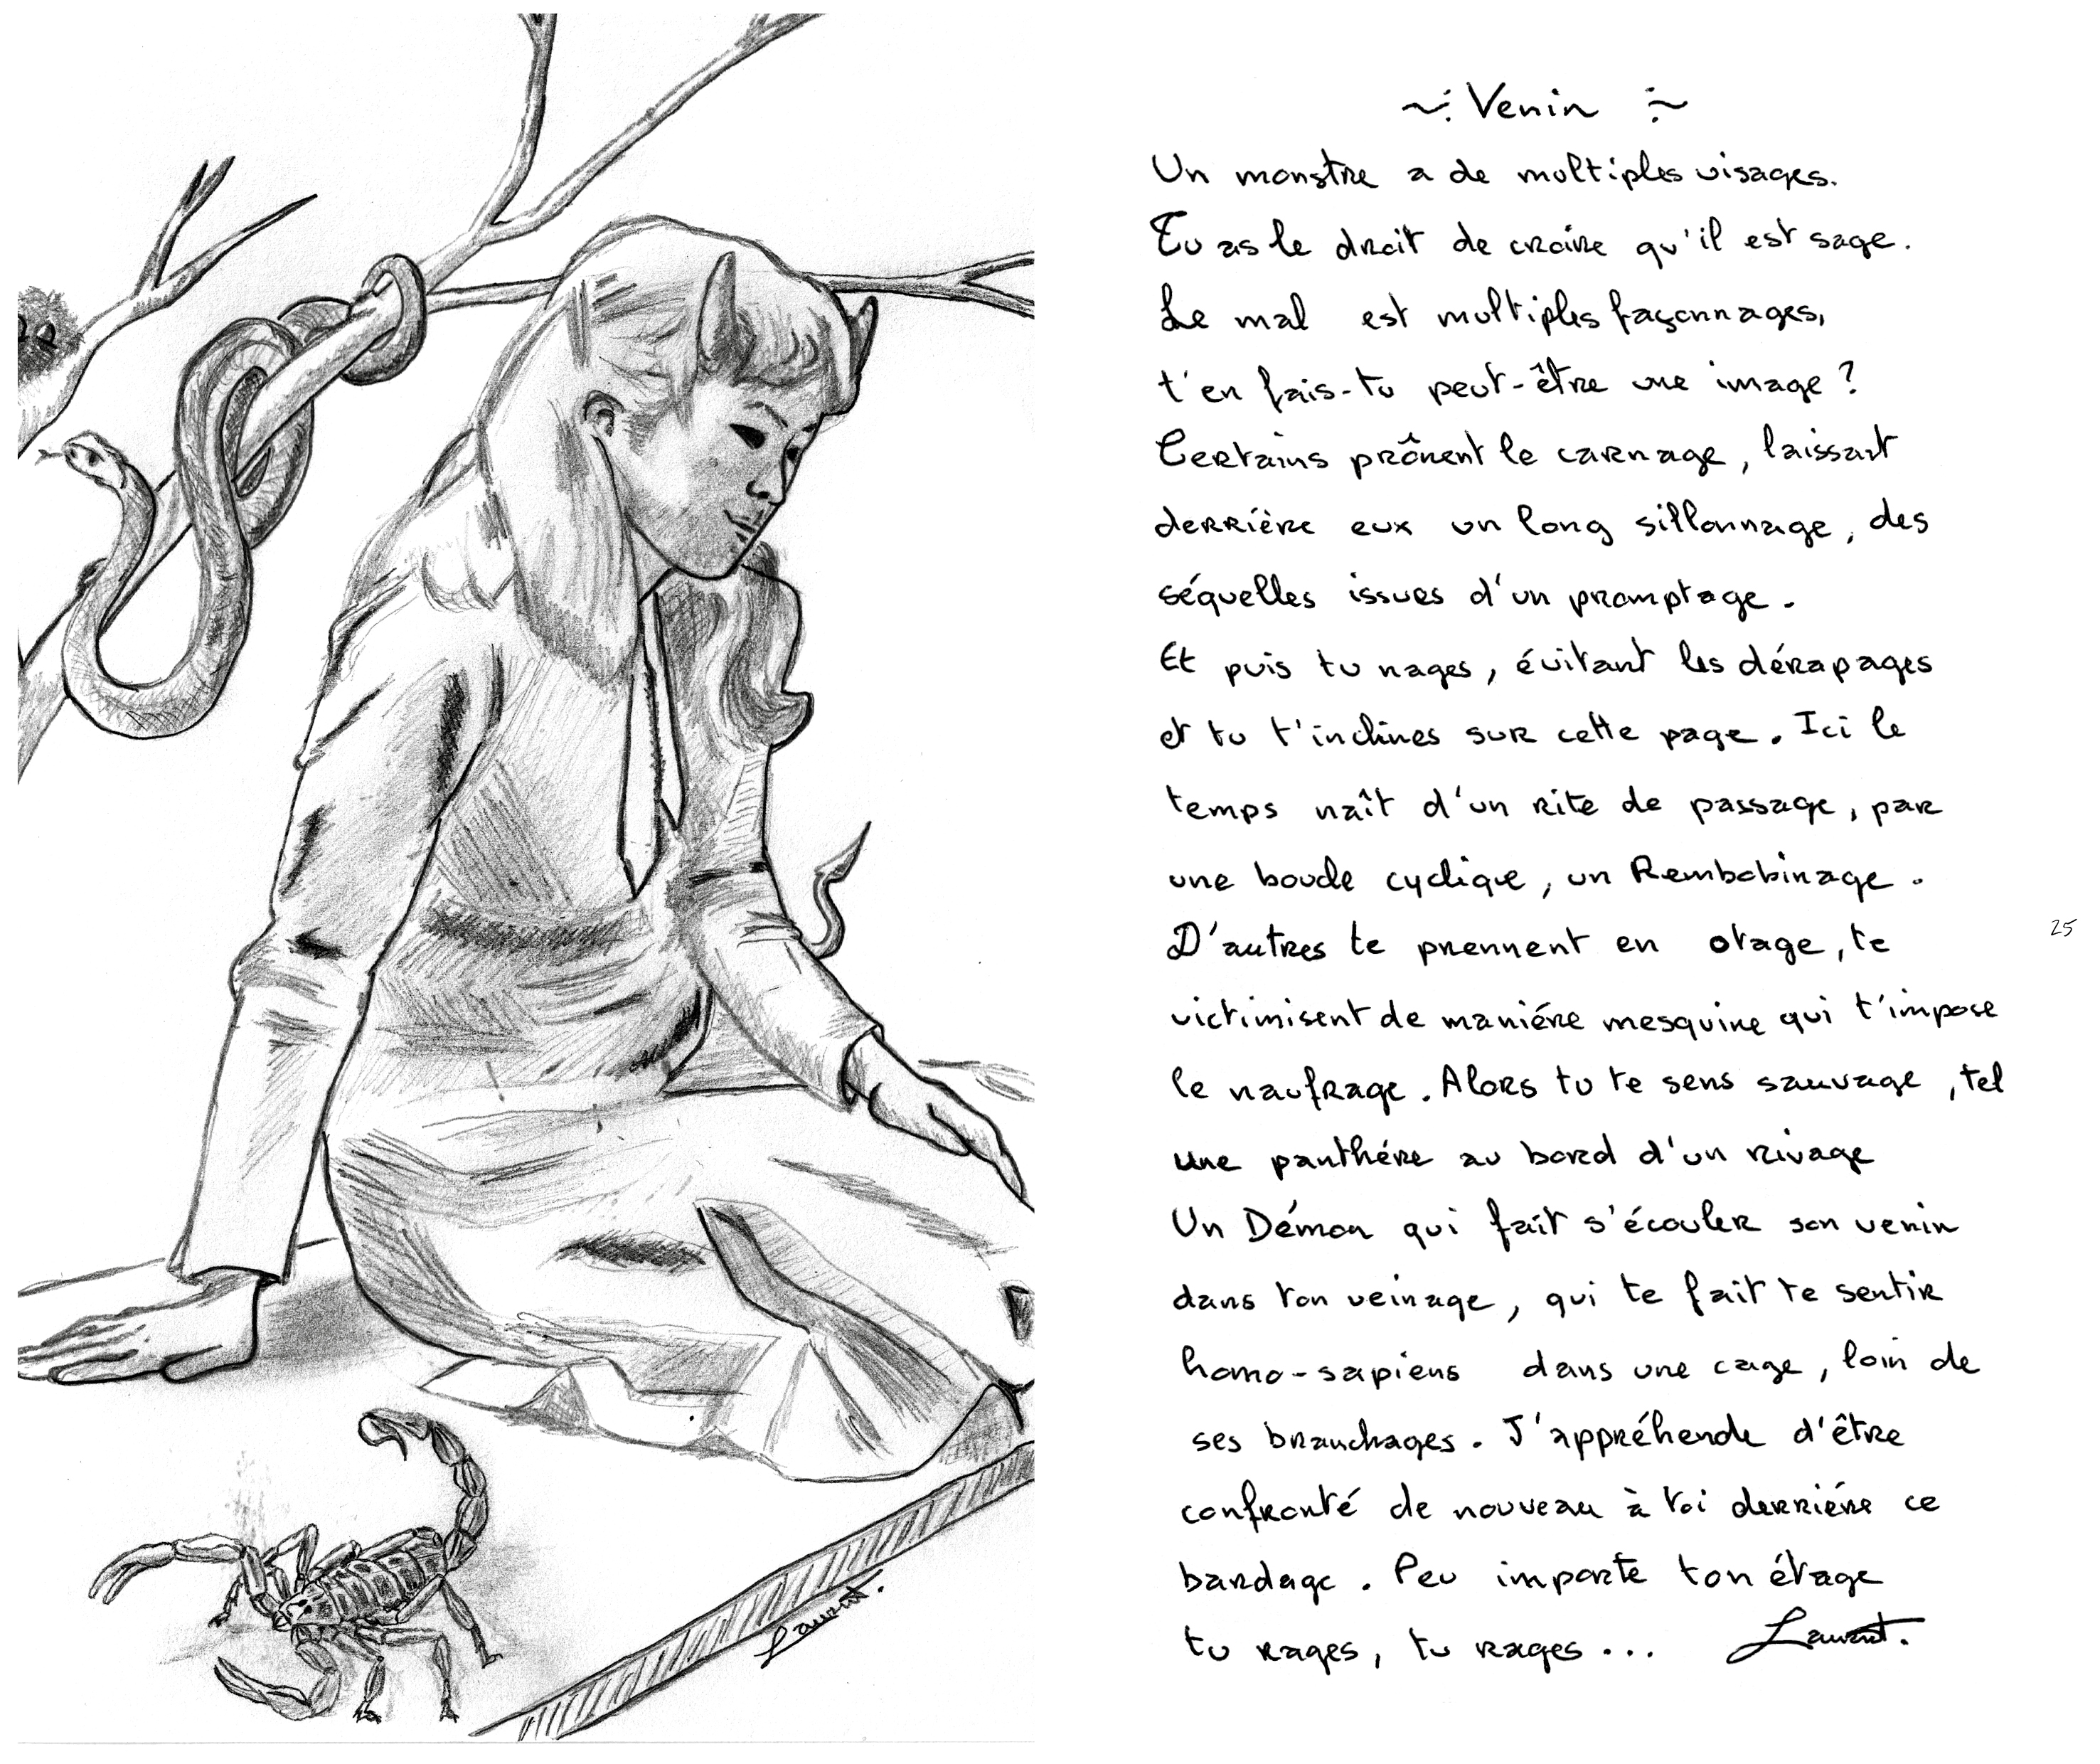 ~: Venin :~
Un monstre a de multiples visages.
Tu as le droit de croire qu'il est sage.
Le mal est multiples façonnages,
t'en fais-tu peut-être une image ?
Certains prônent le carnage, laissant
derrière eux un long sillonnage, des
séquelles issues d'un promptage.
Et puis tu nages, évitant les dérapages
et tu t'inclines sur cette page. Ici le
temps naît d'un rite de passage, par
une boucle cyclique, un Rembobinage.
D'autres te prennent en otage, te
victimisent de maniére mesquine qui t'impose
le naufrage. Alors tu te sens sauvage, tel
une panthére au bord d'un rivage
Un Démon qui fait s'écouler son venin
dans ton veinage, qui te fait te sentir
homo-sapiens dans une cage, loin de
ses branchages. J'appréhende d'être
confronté de nouveau à toi derriére ce
bardage. Peu importe ton étage
tu rages, tu rages... Laurent.
Laurent.
25